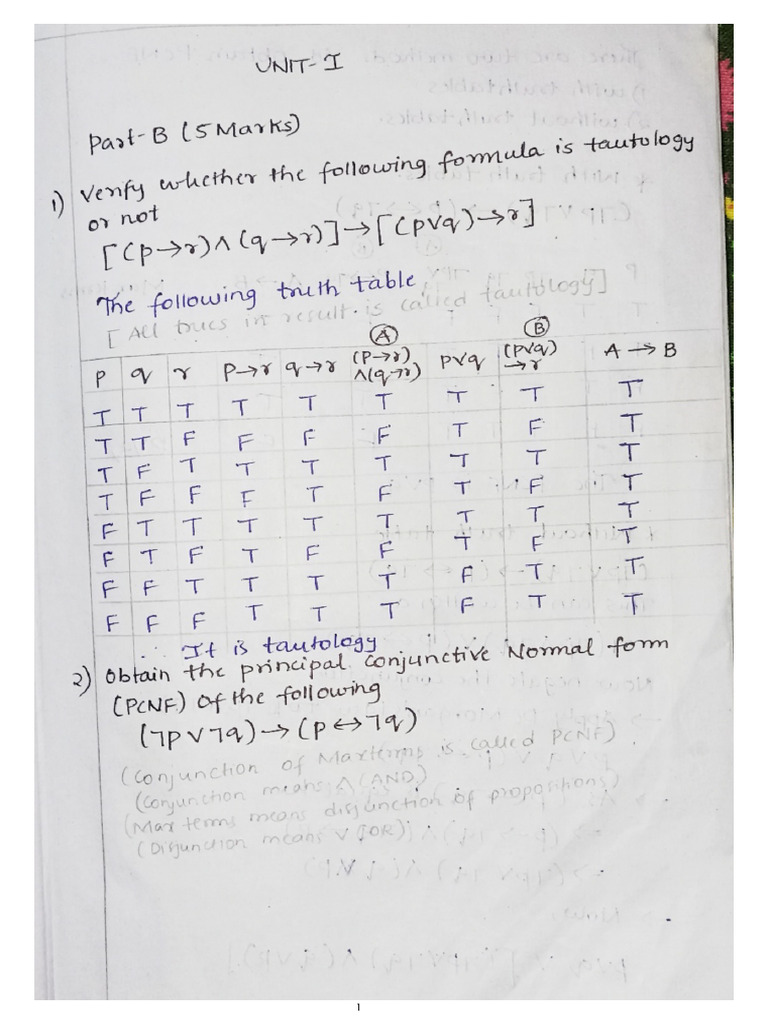 UNIT-I
Part-B (5 Marks)
1) Verify whether the following formula is tautology
or not
[(p→r)∧(q→r)]→[(p∨q)→r]
The following truth table,
[All trues in result is called tautology]
Ⓐ Ⓑ
p q r p→r q→r (p→r) ∧(q→r) p∨q (p∨q) →r A→B
T T T T T T T T T
T T F F F F T F T
T F T T T T T T T
T F F F T F T F T
F T T T T T T T T
F T F T F F T F T
F F T T T T F T T
F F F T T T F T T
∴ It is tautology
2) Obtain the principal conjunctive Normal form
(PCNF) of the following
(¬p∨¬q)→(p↔¬q)
(Conjunction of Maxterms is called PCNF)
(Conjunction means ∧(AND)
(Max terms means disjunction of propositions)
(Disjunction means ∨(OR))
1